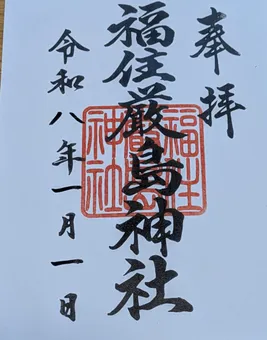 奉拝
福住厳島神社
令和八年一月一日
福住
神社